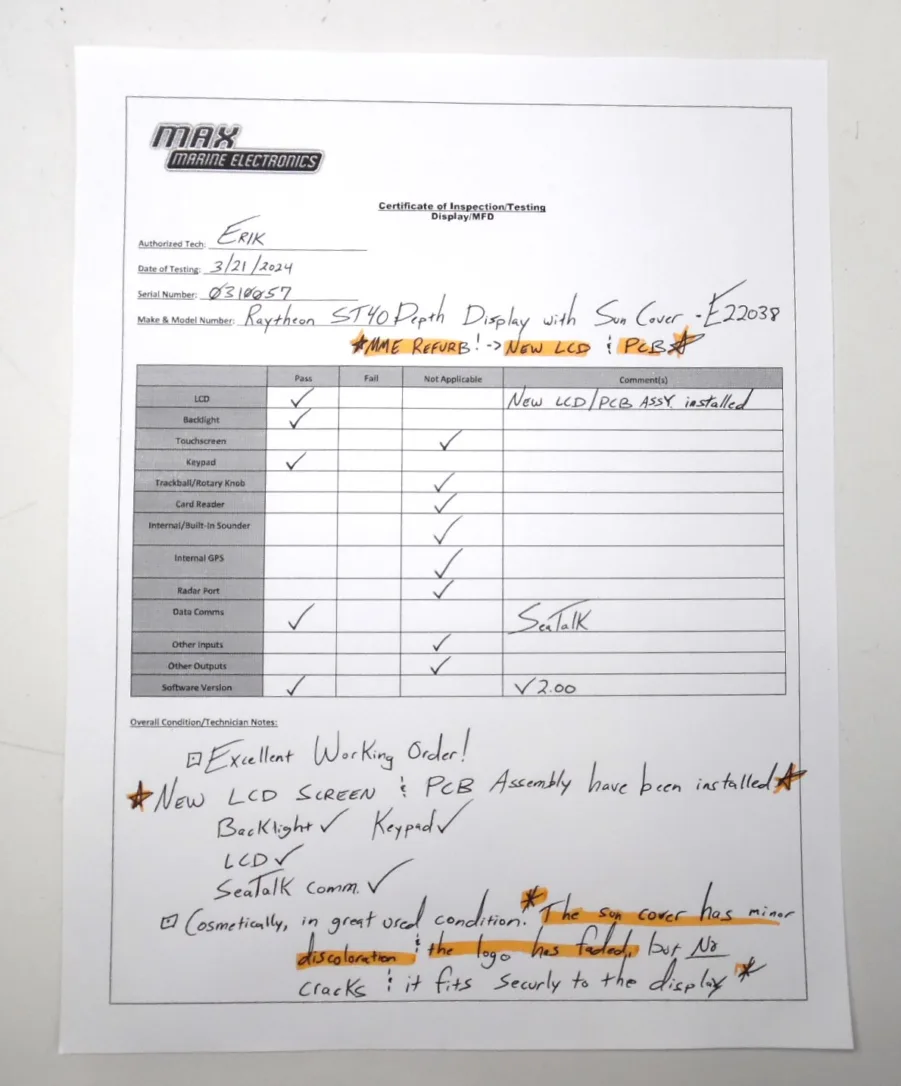 MAX
MARINE ELECTRONICS
Certificate of Inspection/Testing
Display/MFD
Authorized Tech: ERIK
Date of Testing: 3/21/2024
Serial Number: 0310057
Make & Model Number: Raytheon ST40 Depth Display with Sun Cover - E22038
MME REFURB! -> NEW LCD & PCB
Pass Fail Not Applicable Comment(s)
LCD ✓ New LCD/PCB ASSY. installed
Backlight ✓
Touchscreen ✓
Keypad ✓
Trackball/Rotary Knob ✓
Card Reader ✓
Internal/Built-In Sounder ✓
Internal GPS ✓
Radar Port ✓
Data Comms ✓ SeaTalk
Other Inputs ✓
Other Outputs ✓
Software Version ✓ V2.00
Overall Condition/Technician Notes:
Excellent Working Order!
NEW LCD SCREEN & PCB Assembly have been installed
Backlight ✓ Keypad ✓
LCD ✓
SeaTalk comm. ✓
Cosmetically, in great used condition. *The sun cover has minor
discoloration & the logo has faded, but No
cracks & it fits securly to the display*